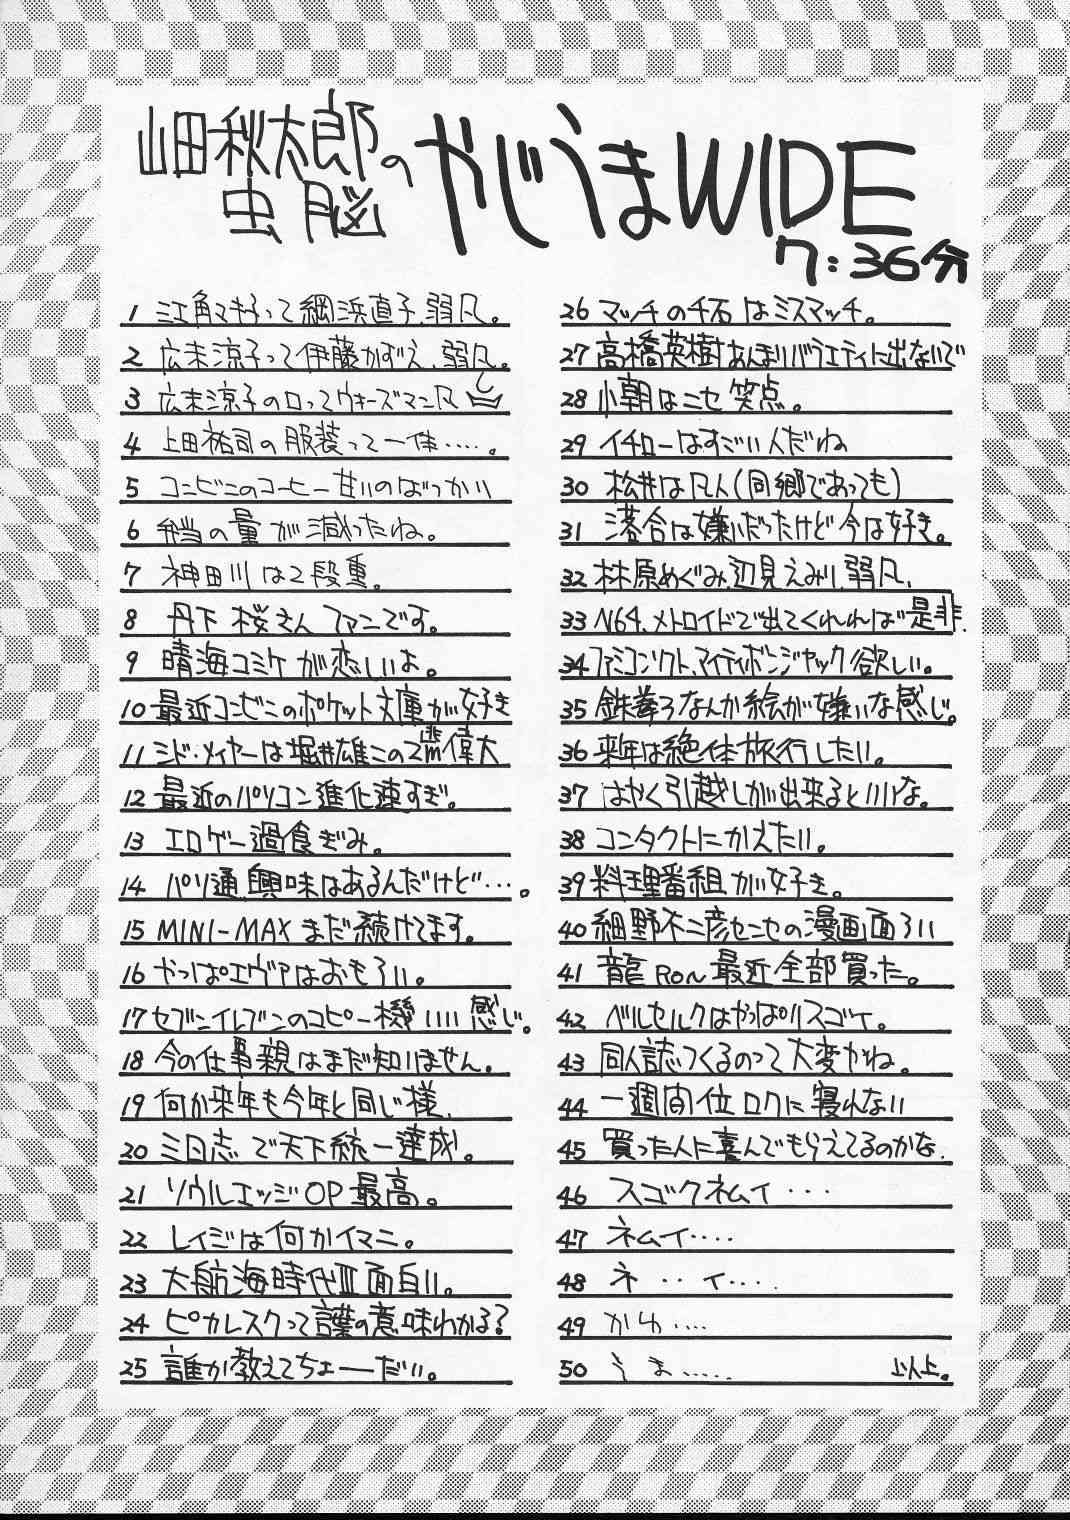 山田秋太郎の
虫脳
やじうまWIDE
7:36分
1 江角マキ子って網浜直子、弱凡。
2 広末涼子って伊藤かずえ、弱凡。
3 広末涼子の口ってウォーズマン
4 上田祐司の服装って一体‥‥。
5 コンビニのコーヒー甘いのばっかい
6 弁当の量が減ったね。
7 神田川は2段重。
8 丹下桜さんファンです。
9 晴海コミケが恋しいよ。
10 最近コンビニのポケット文庫が好き
11 シド・メイヤーは堀井雄二の2歯偉大
12 最近のパソコン進化速すぎ。
13 エロゲー過食ぎみ。
14 パソ通、興味はあるんだけど‥‥。
15 MINI-MAXまだ続けてます。
16 やっぱエヴァはおもろい。
17 セブンイレブンのコピー機いい感じ。
18 今の仕事親はまだ知りません。
19 何か来年も今年と同じ様、
20 三国志で天下統一達成。
21 ソウルエッジOP最高。
22 レイジは何かイマニ。
23 大航海時代Ⅲ面白い。
24 ピカレスクって言葉の意味わかる?
25 誰か教えてちょーだい。
26 マッチの千石はミスマッチ。
27 高橋英樹あんまりバラエティに出ないで
28 小朝はニセ笑点。
29 イチローはすごい人だね
30 松井は凡人(同郷であっても)
31 落合は嫌いだったけど今は好き。
32 林原めぐみ、辺見えみり、弱凡、
33 N64、メトロイドで出てくれれば是非.
34 ファミコンソフト、マイティボンジャック欲しい。
35 鉄拳3なんか絵が嫌いな感じ。
36 来年は絶体旅行したい。
37 はやく引越しが出来るといいな。
38 コンタクトにかえたい。
39 料理番組が好き。
40 細野不二彦センセの漫画面ろい
41 龍Ron最近全部買った。
42 ベルセルクはやっぱりスゴイ。
43 同人誌つくるのって大変かね。
44 一週間位ロクに寝れない
45 買った人に喜んでもらえてるのかな.
46 スゴクネムイ・・・
47 ネムイ‥‥
48 ネ‥イ‥‥
49 かゆ‥‥
50 うま‥‥. 以上。